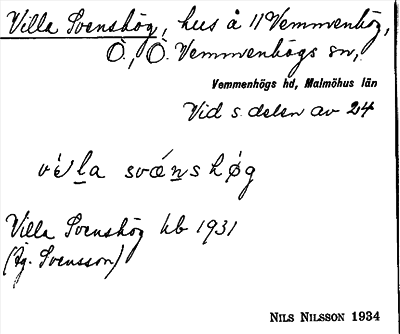 Villa Svenshög, hus å 11 Vemmenhög,
Ö., Ö. Vemmenhögs sn,
Vemmenhögs hd, Malmöhus län
Vid s. delen av 24
svǽnshǿg
Villa Svenshög hb 1931
(Äg. Svensson)
NILS NILSSON 1934